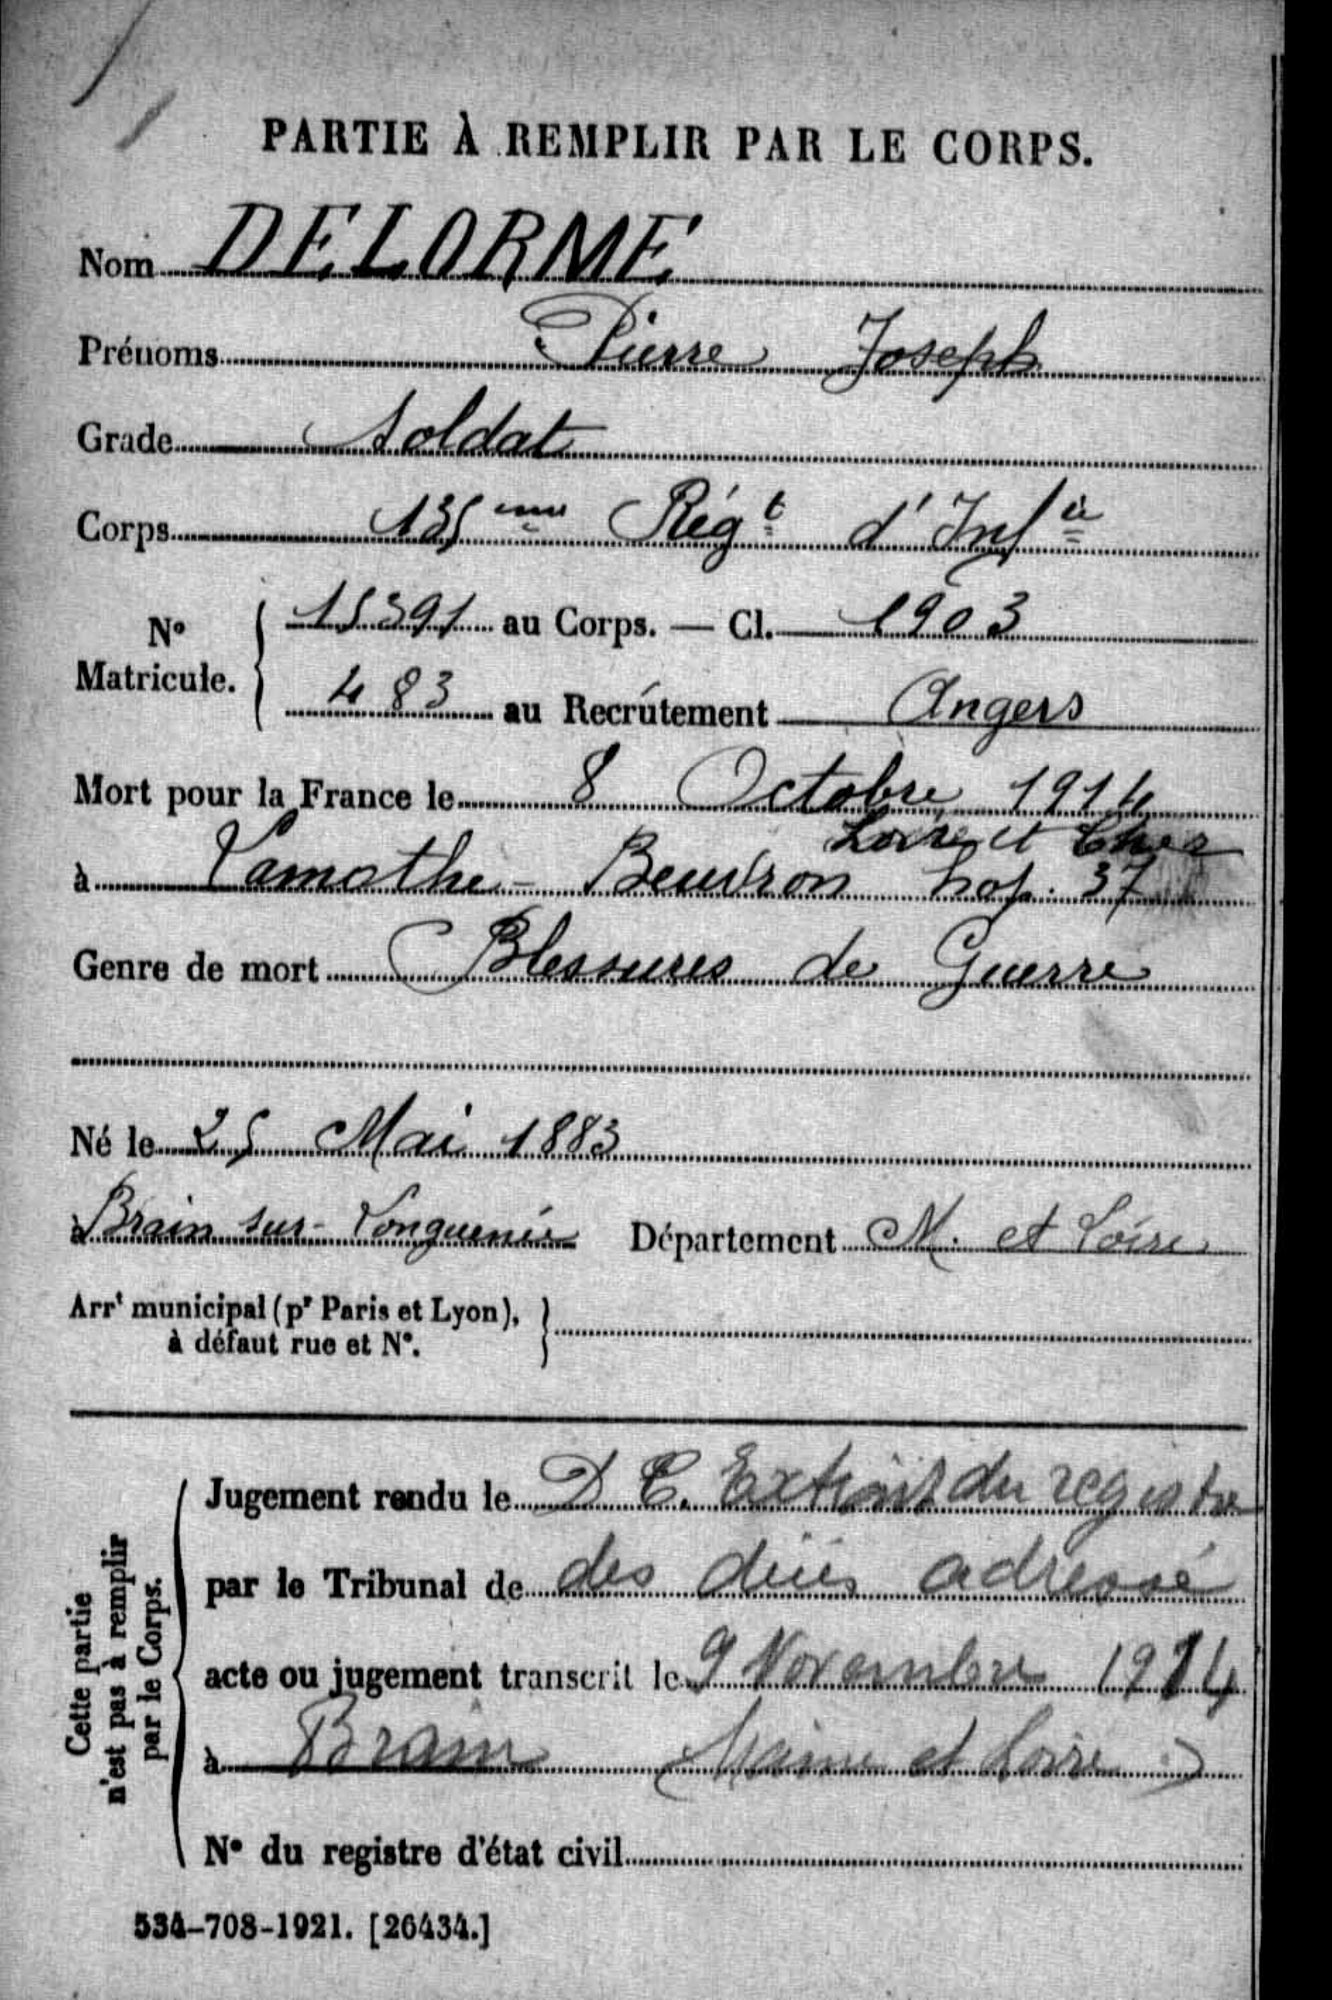 PARTIE À REMPLIR PAR LE CORPS.
Nom DELORME
Prénoms Pierre Joseph
Grade Soldat
Corps 135ème Régt d'Infie
No
Matricule.
15391 au Corps. — Cl. 1903
483 au Recrutement Angers
Mort pour la France le 8 Octobre 1914
Loir et Cher
à Lamothe-Beuvron hop. 37
Genre de mort Blessures de Guerre
Né le 25 Mai 1883
à Brain sur-Longuenée Département M. et Loire
Arrt municipal (pr Paris et Lyon),
à défaut rue et No.
Cette partie
n'est pas à remplir
par le Corps.
Jugement rendu le D C. Extrait du registre
par le Tribunal de des décès adressé
acte ou jugement transcrit le 9 Novembre 1914
à Brain (Maine et Loire)
No du registre d'état civil
534-708-1921. [26434.]